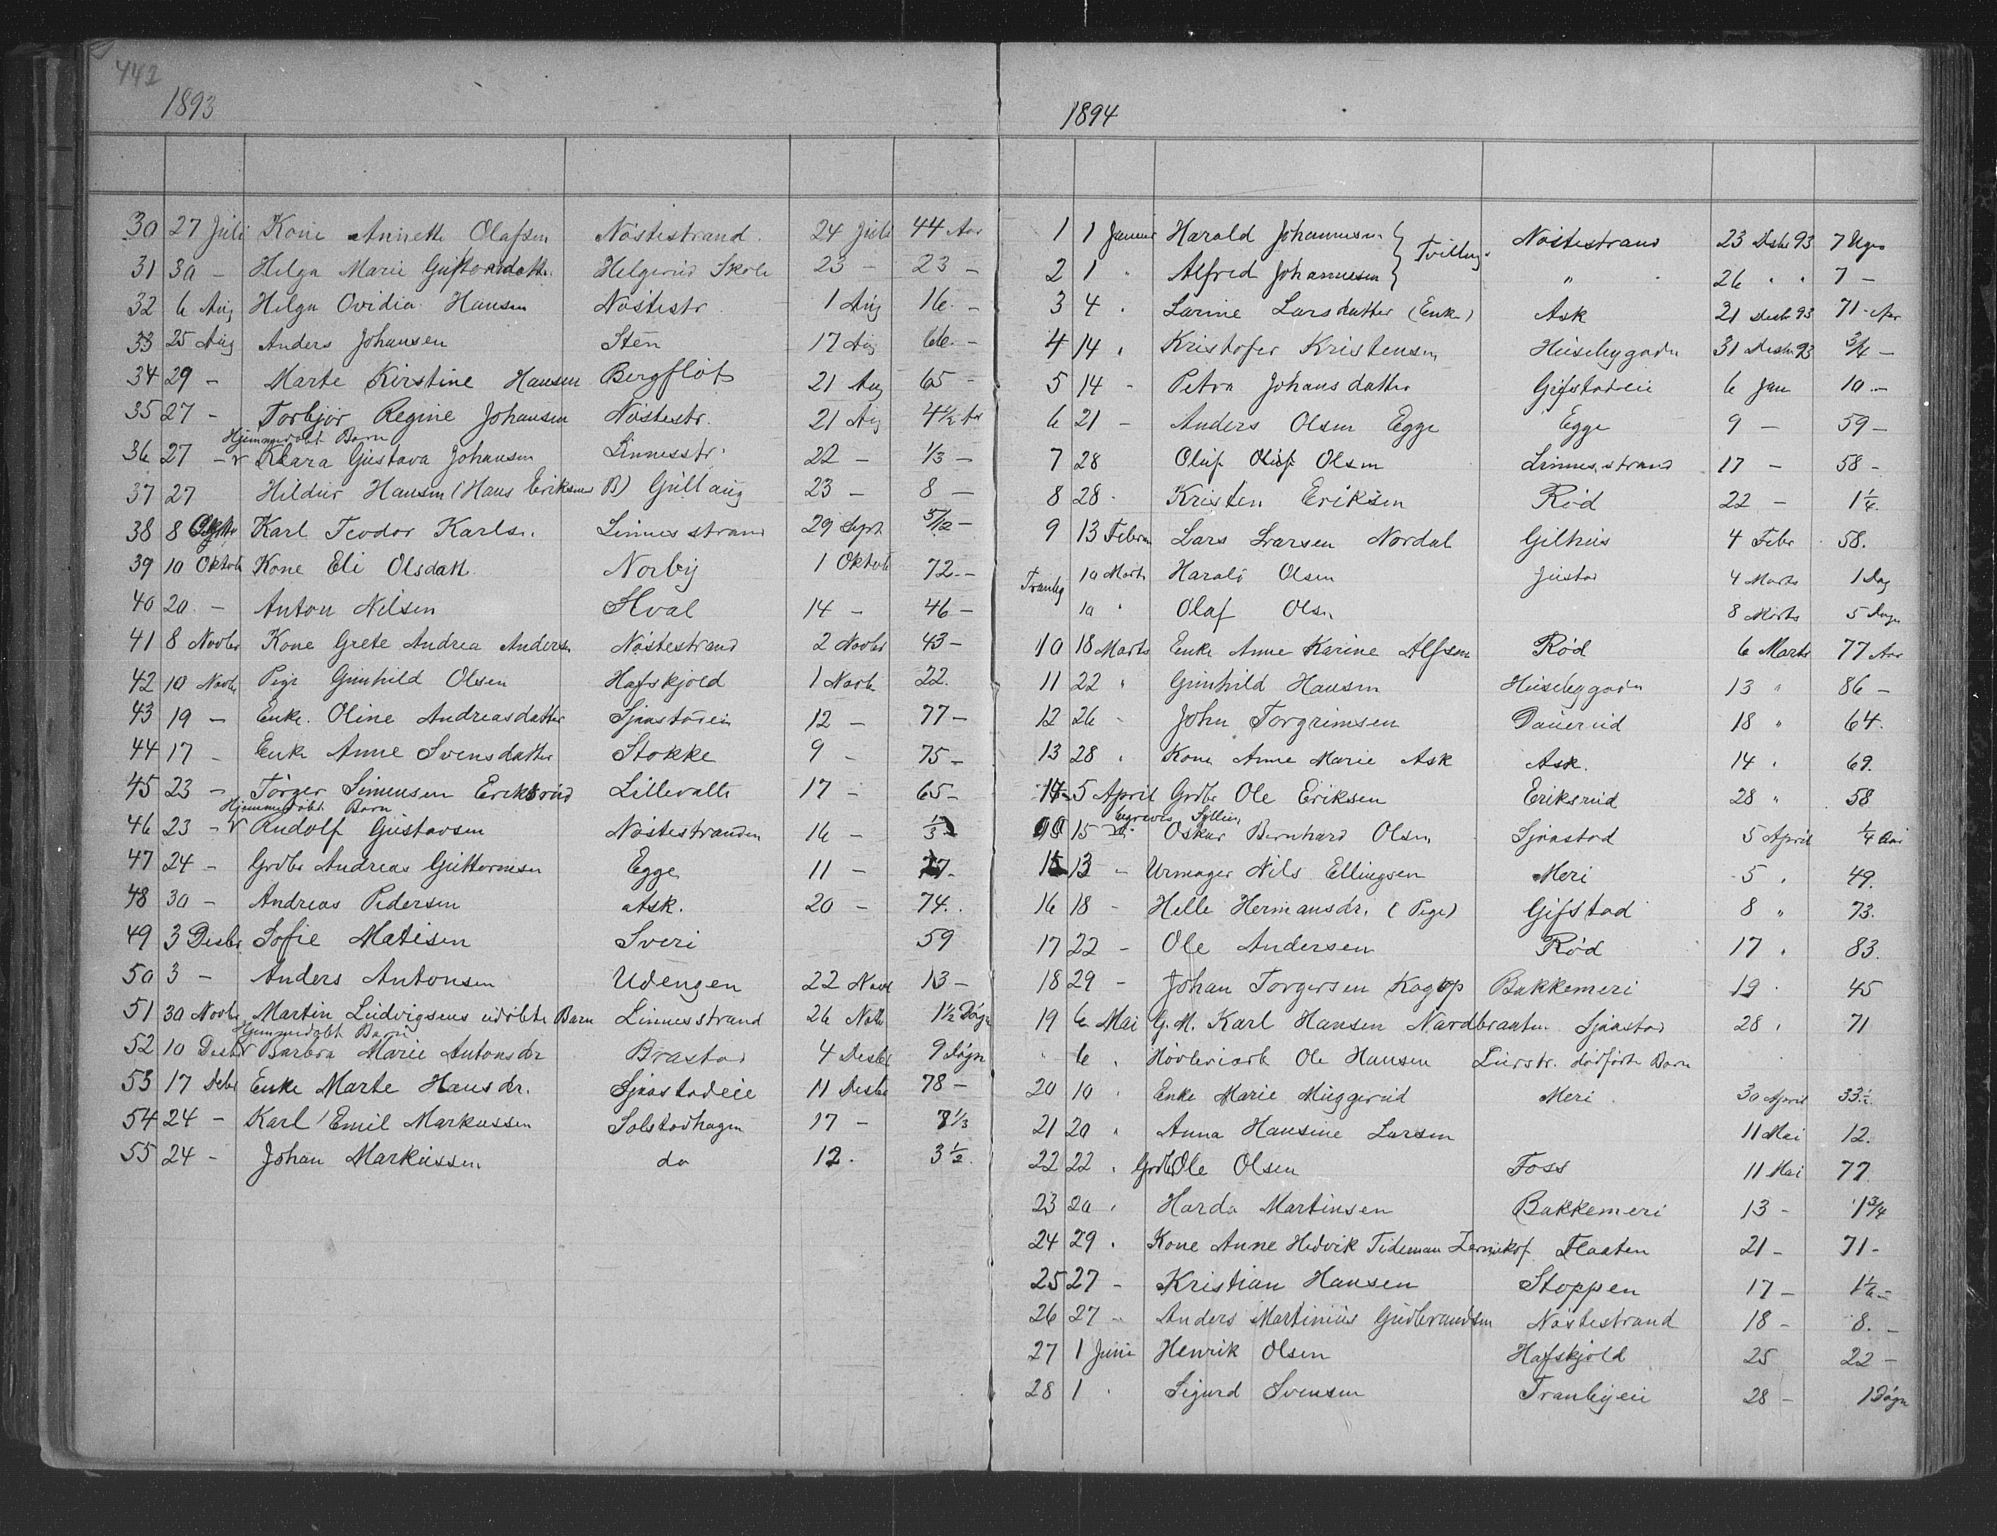 442
1893
30 27 Juli Kone Annette Olafsen Nöstestrand. 24 Juli 44 Aar
31 30 – Helga Marie Guttormdatter. Helgerud Skole 23 – 23 –
32 6 Aug Helga Ovidia Hansen Nöstestr. 1 Aug 16. –
33 25 Aug Anders Johansen Sten 17 Aug 66. –
34 29 – Marte Kirstine Hansen Bergflöt 21 Aug 65 –
35 27 – Torbjör Regine Johansen Nöstestr. 21 Aug 4½ Aar
Hjemmedöbt Barn
36 27 – Klara Gustava Johansen Linnesstr. 22 – 1/3 –
37 27 Hildur Hansen (Hans Eriksens B) Gullaug 23 – 8 –
38 8 Karl Teodor Karls. Linnesstrand 29 Sept 5/12 –
39 10 Oktob Kone Eli Olsdatt. Norby 1 Oktob 72. –
40 20. – Anton Nilsen Hval 14 – 46 –
41 8 Novbr Kone Grete Andrea Andersen Nöstestrand 2 Novbr 43 –
42 10 Novbr Pige Gunhild Olsen Hafskjold 1 Novb 22.
43 19 – Enke. Oline Andreasdatter Sjaastadeie 12 – 77 –
44 17 – Enke Anne Svensdatter Stokke 9 – 75 –
45 23 – Torger Simensen Eriksrud Lillevalle 17 – 65 –
Hjemmedöbt Barn
46 23 – Rudolf Gustavsen Nöstestranden 16 – 1/3
47 24 – Grdbr Andreas Guttormsen Egge 11 – 77.
48 30 – Andreas Pedersen Ask. 20 – 74.
49 3 Desbr Sofie Matisen Sveri 59
50 3 – Anders Antonsen Udengen 22 Novb 13 –
51 30 Novbr Martin Ludvigsens udöbte Barn Linnesstrand 26 Novb 1½ Dögn
Hjemmedöbt Barn
52 10 Desbr Barbra Marie Antonsdr Brastad 4 Desbr 9 Dögn
53 17 Debr Enke Marte Hansdr. Sjaastadeie 11 Desbr 78 –
54 24 – Karl Emil Markussen Solstadhagen 17 – 7 1/3
55 24 – Johan Markussen do 12. 3½.
1894
1 1 Januar Harald Johannesen Tvilling Nöstestrand 23 Desbr 93 7 Uger
2 1 " Alfred Johannesen " 26 " " 7 –
3 4 " Larine Larsdatter (Enke) Ask 21 Desbr 93 71 – Aar
4 14 " Kristofer Kristensen Husebygaden 31 Desbr 93 3/4 –
5 14 – Petra Johansdatter Gifstadeie 6 Jan 10 –
6 21 – Anders Olsen Egge Egge 9 – 59 –
7 28 Oluf Olsen Linnesstrand 17 – 58 –
8 28 – Kristen Eriksen Röd 22 – 1¼.
9 13 Februar Lars Larsen Nordal Gilhus 4 Febr 58.
Tranby 10 Marts Harald Olsen Justad 4 Marts 1 Dag
10 " Olaf Olsen 8 Marts 5 Dage
10 18 Marts Enke Anne Karine Alfsen Röd 6 Marts 77 Aar
11 22 " Gunhild Hansen Husebygaden 13 " 86 –
12 26 – John Torgrimsen Dauerud 18 " 64.
13 28 " Kone Anne Marie Ask Ask. 14 " 69.
14 5 April Grdbr Ole Eriksen Eriksrud 28 " 58
15 – Oskar Bernhard Olsen Sjaastad 5 April ¼ Aar
15 13 – Urmager Nils Ellingsen Meri 5 " 49.
16 18 – Helle Hermansdr. (Pige) Gifstad 8 " 73.
17 22 – Ole Andersen Röd 17 " 83.
18 29 – Johan Torgersen Kagop Bakkemeri 19 " 45
19 6 Mai G.M. Karl Hansen Nordbraaten Sjaastad 28 " 71
" 6 " Hövleriarb Ole Hansen Lierstr. dödfödte Barn
20 10 " Enke Marie Muggerud Meri 30 April 33½
21 20 " Anna Hansine Larsen 11 Mai 12.
22 22 " Grdbr Ole Olsen Foss 11 Mai 77.
23 20 " Harda Martinsen Bakkemeri 13 – 1 3/4
24 29 " Kone Anne Hedvik Tideman Flaaten 21 – 71 –
25 27 – Kristian Hansen Stoppen 17 – 1½ –
26 27 – Anders Martinius Gudbrandsen Nöstestrand 18 – 8. –
27 1 Juni Henrik Olsen Hafskjold 25 22 –
28 1 " Sigurd Svensen Tranbyeie 28 – 1 Dögn